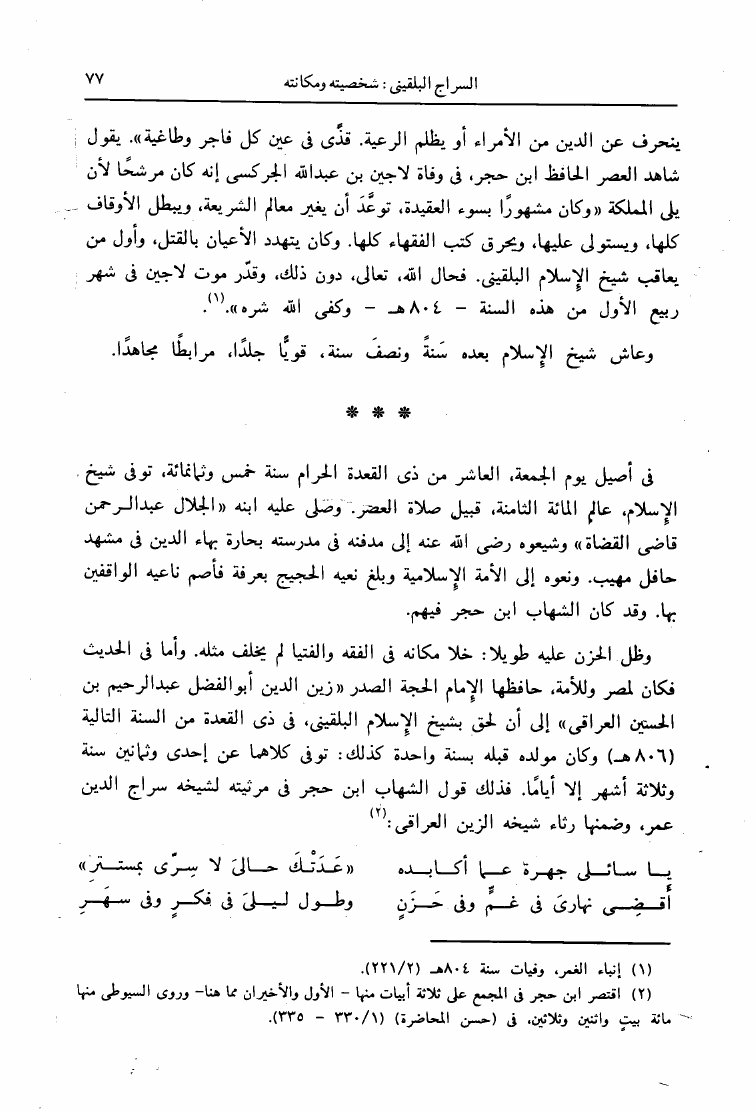 السراج البلقيني : شخصيته ومكانته ٧٧
ينحرف عن الدين من الأمراء أو يظلم الرعية. قذًى فى عين كل فاجر وطاغية». يقول
شاهد العصر الحافظ ابن حجر، فى وفاة لاجين بن عبدالله الجركسى إنه كان مرشحًا لأن
يلى المملكة «وكان مشهورًا بسوء العقيدة، توعَّدَ أن يغير معالم الشريعة، ويبطل الأوقاف
كلها، ويستولى عليها، ويحرق كتب الفقهاء كلها. وكان يتهدد الأعيان بالقتل، وأول من
يعاقب شيخ الإسلام البلقينى. فحال الله، تعالى، دون ذلك، وقدّر موت لاجين فى شهر
ربيع الأول من هذه السنة – ٨٠٤هـ – وكفى الله شره».(١).
وعاش شيخ الإسلام بعده سَنةً ونصفَ سنة، قويًّا جلدًا، مرابطًا مجاهدًا.
* * *
فى أصيل يوم الجمعة، العاشر من ذى القعدة الحرام سنة خمس وثمانمائة، توفى شيخ
الإسلام، عالم المائة الثامنة، قبيل صلاة العصر. وصَلى عليه ابنه «الجلال عبدالرحمن
قاضى القضاة» وشيعوه رضى الله عنه إلى مدفنه فى مدرسته بحارة بهاء الدين فى مشهد
حافل مهيب. ونعوه إلى الأمة الإسلامية وبلغ نعيه الحجيج بعرفة فأصم ناعيه الواقفين
بها. وقد كان الشهاب ابن حجر فيهم.
وظل الحزن عليه طويلا: خلا مكانه فى الفقه والفتيا لم يخلف مثله. وأما فى الحديث
فكان لمصر وللأمة، حافظها الإمام الحجة الصدر «زين الدين أبوالفضل عبدالرحيم بن
الحسين العراقى» إلى أن لحق بشيخ الإسلام البلقينى، فى ذى القعدة من السنة التالية
(٨٠٦هـ) وكان مولده قبله بسنة واحدة كذلك: توفى كلاهما عن إحدى وثمانين سنة
وثلاثة أشهر إلا أيامًا. فذلك قول الشهاب ابن حجر فى مرثيته لشيخه سراج الدين
عمر، وضمنها رثاء شيخه الزين العراقى:(٢)
يا سائلى جهرة عما أكابده «عَدَتْكَ حالىَ لا سِرّى بمستترِ»
أُقضِى نهارىَ فى غمٍّ وفى حَزَنٍ وطول ليلىَ فى فكرٍ وفى سهَرِ
(١) إنباء الغمر، وفيات سنة ٨٠٤هـ (٢٢١/٢).
(٢) اقتصر ابن حجر فى المجمع على ثلاثة أبيات منها – الأول والأخيران مما هنا– وروى السيوطى منها
مائة بيتٍ واثنين وثلاثين، فى (حسن المحاضرة) (٣٣٠/١ – ٣٣٥).